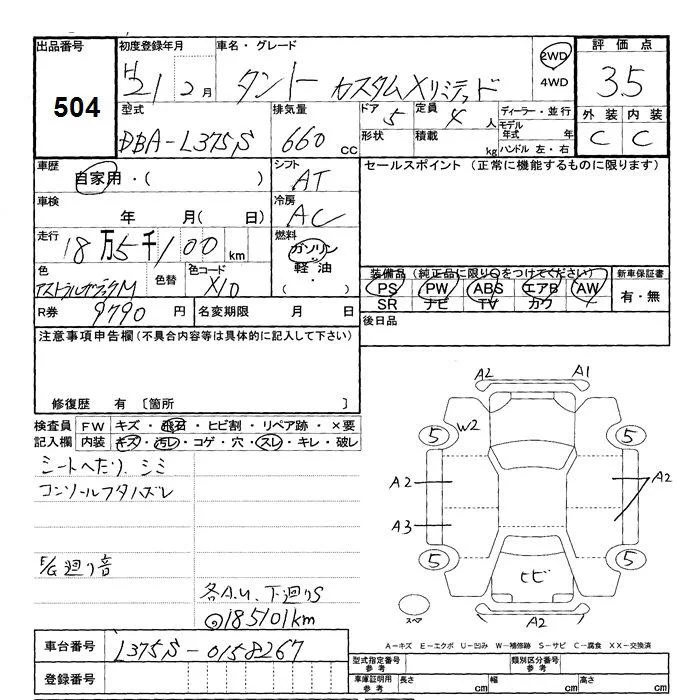 出品番号 初度登録年月 車名・グレード 2WD 評価点
504 H21 2月 タント カスタムXリミテッド 4WD 3.5
型式 排気量 ドア 5 定員 4人 ディーラー・並行 外装 内装
DBA-L375S 660cc 形状 積載 kg モデル年式 年 C C
ハンドル 左・右
車歴 シフト セールスポイント（正常に機能するものに限ります）
自家用・（ ） AT
車検 冷房
年 月（ 日） AC
走行 燃料
18万5千100km ガソリン
軽油
（ ）
色 色替 色コード 装備品（純正品に限り○をつけてください） 新車保証書
アストラルブラックM X10 PS PW ABS エアB AW 有・無
SR ナビ TV カワ
R券 9790円 名変期限 月 日 後日品
注意事項申告欄（不具合内容等は具体的に記入して下さい）
修復歴 有 〔箇所 〕
検査員 FW キズ・飛石・ヒビ割・リペア跡・×要
記入欄 内装 キズ・汚レ・コゲ・穴・スレ・キレ・破レ
シートヘたり、シミ
コンソールフタハズレ
E/G廻り音
各A.U、下廻りS
@185101km
A2 A1
5 W2 5
A2 A2
A3
5 ヒビ 5
スペア A2
A-キズ E-エクボ U-凹み W-補修跡 S-サビ C-腐食 XX-交換済
車台番号 L375S-0158267
登録番号
型式指定番号 参考 類別区分番号 参考
車庫証明用 参考 長さ cm 幅 cm 高さ cm